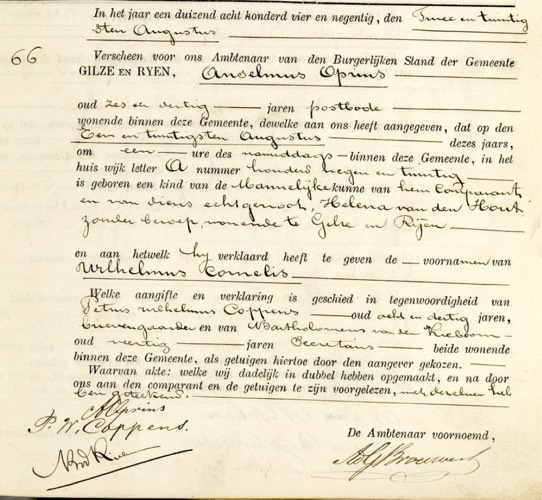 In het jaar een duizend acht honderd vier en negentig, den Twee en twintig
sten Augustus
66
Verscheen voor ons Ambtenaar van den Burgerlijken Stand der Gemeente
GILZE EN RYEN, Anselmus Oprins
oud zes en dertig jaren postbode
wonende binnen deze Gemeente, dewelke aan ons heeft aangegeven, dat op den
Een en twintigsten Augustus dezes jaars,
om een ure des namiddags binnen deze Gemeente, in het
huis wijk letter A nummer honderd negen en twintig
is geboren een kind van de Mannelijke kunne van hem Comparant
en van diens echtgenoot, Helena van den Hout
zonder beroep, wonende te Gilze en Rijen
en aan hetwelk hij verklaard heeft te geven de voornamen van
Wilhelmus Cornelis
Welke aangifte en verklaring is geschied in tegenwoordigheid van
Petrus Wilhelmus Coppens oud acht en dertig jaren,
brievengaarder en van Bartholomeus van den Kieboom
oud veertig jaren Secretaris beide wonende
binnen deze Gemeente, als getuigen hiertoe door den aangever gekozen.
Waarvan akte: welke wij dadelijk in dubbel hebben opgemaakt, en na door
ons aan den comparant en de getuigen te zijn voorgelezen, met dezelven heb
ben geteekend.
A Oprins
P. W. Coppens.
De Ambtenaar voornoemd,